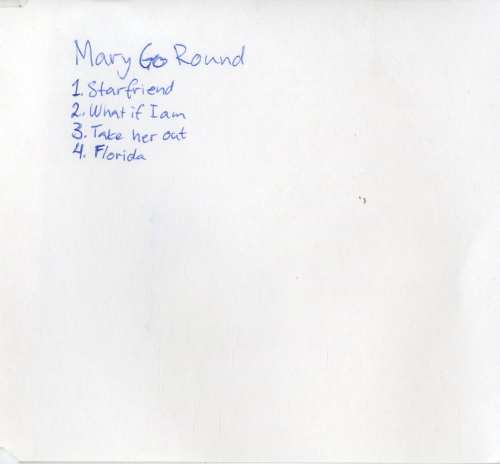 Mary Go Round
1. Starfriend
2. What if I am
3. Take her out
4. Florida